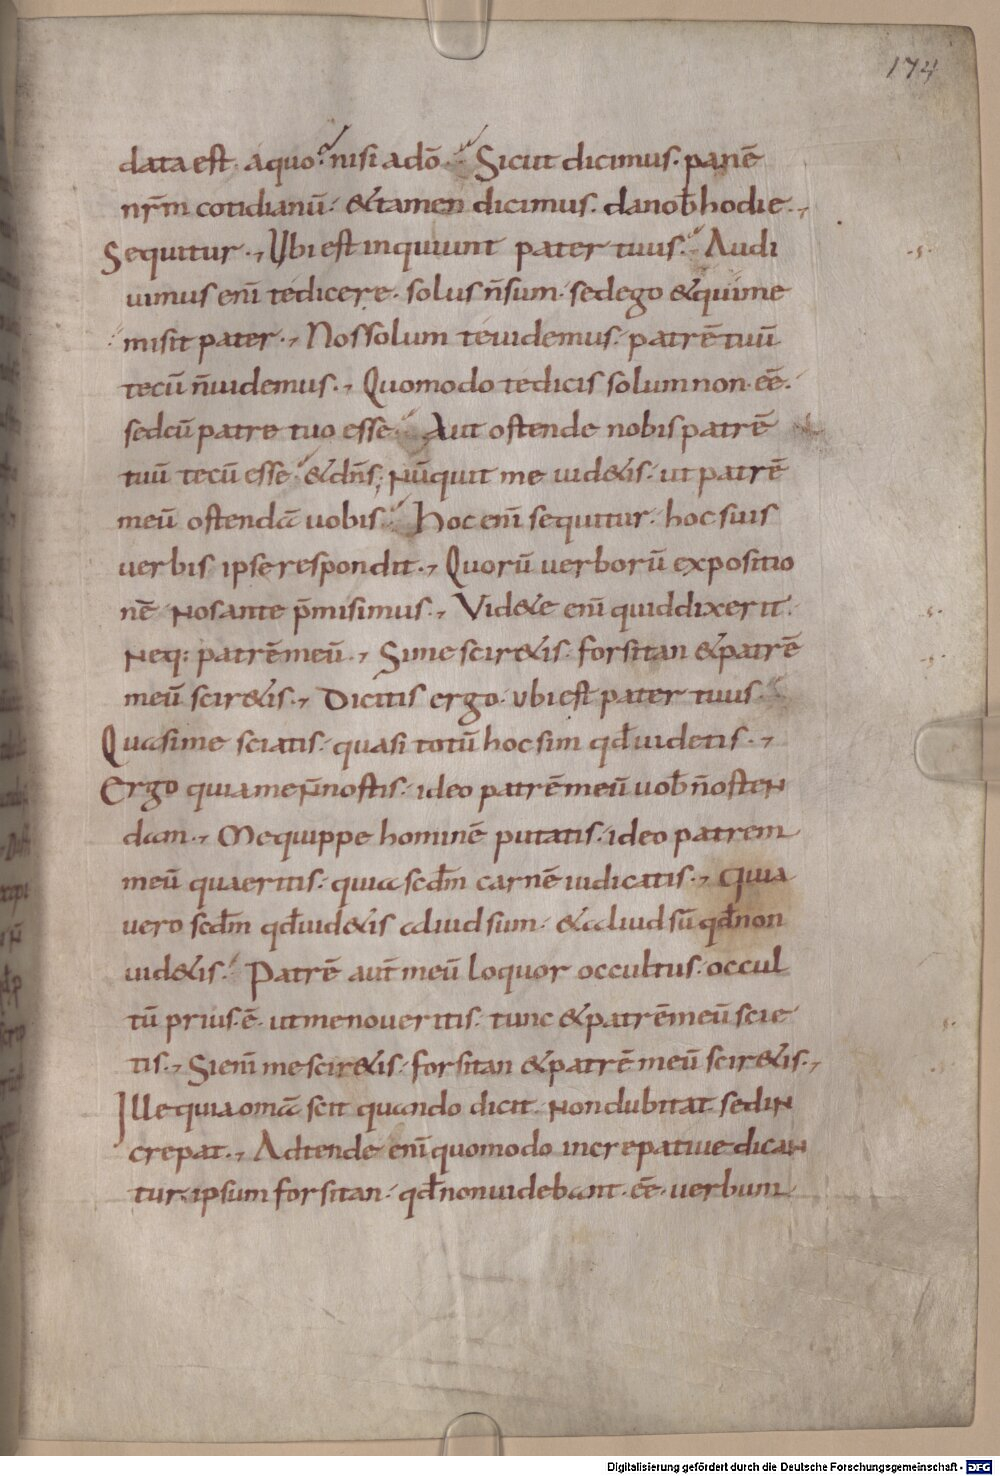 174
data est. a quo? nisi a dō. Sicut dicimus. panē
nr̄m cotidianū. & tamen dicimus. da nob̄ hodie.,
Sequitur., Ubi est inquiunt pater tuus. Audi
uimus enī te dicere. solus n̄ sum. sed ego & qui me
misit pater., Nos solum te uidemus. patrē tuū
tecū n̄ uidemus., Quomodo te dicis solum non. eē.
sed cū patre tuo esse. Aut ostende nobis patrē
tuū tecū esse. & dn̄s; Nūquit me uid&is. ut patrē
meū ostendā uobis. Hoc enī sequitur. hoc suis
uerbis ipse respondit., Quorū uerborū expositio
nē nos ante p̄misimus., Vid&e enī quid dixerit.
Neq: patrē meū., Si me scir&is. forsitan & patrē
meū scir&is., Dicitis ergo. ubi est pater tuus.
Quasi me sciatis. quasi totū hoc sim qd̄ uidetis.,
Ergo quia me n̄ nostis. ideo patrē meū uob̄ n̄ osten
dam., Me quippe hominē putatis. ideo patrem
meū quaeritis. quia scd̄m carnē iudicatis., Quia
uero scd̄m qd̄ uid&is aliud sum. & aliud sū qd̄ non
uid&is. Patrē aut̄ meū loquor occultus. occul
tū prius. ē. ut me noueritis. tunc & patrē meū scie
tis., Si enī me scir&is. forsitan & patrē meū scir&is.,
Ille qui a omā scit quando dicit. non dubitat sed in
crepat., Adtende enī quomodo increpatiue dican
tur. ipsum forsitan. qd̄ non uidebant. eē. uerbum
Digitalisierung gefördert durch die Deutsche Forschungsgemeinschaft - DFG